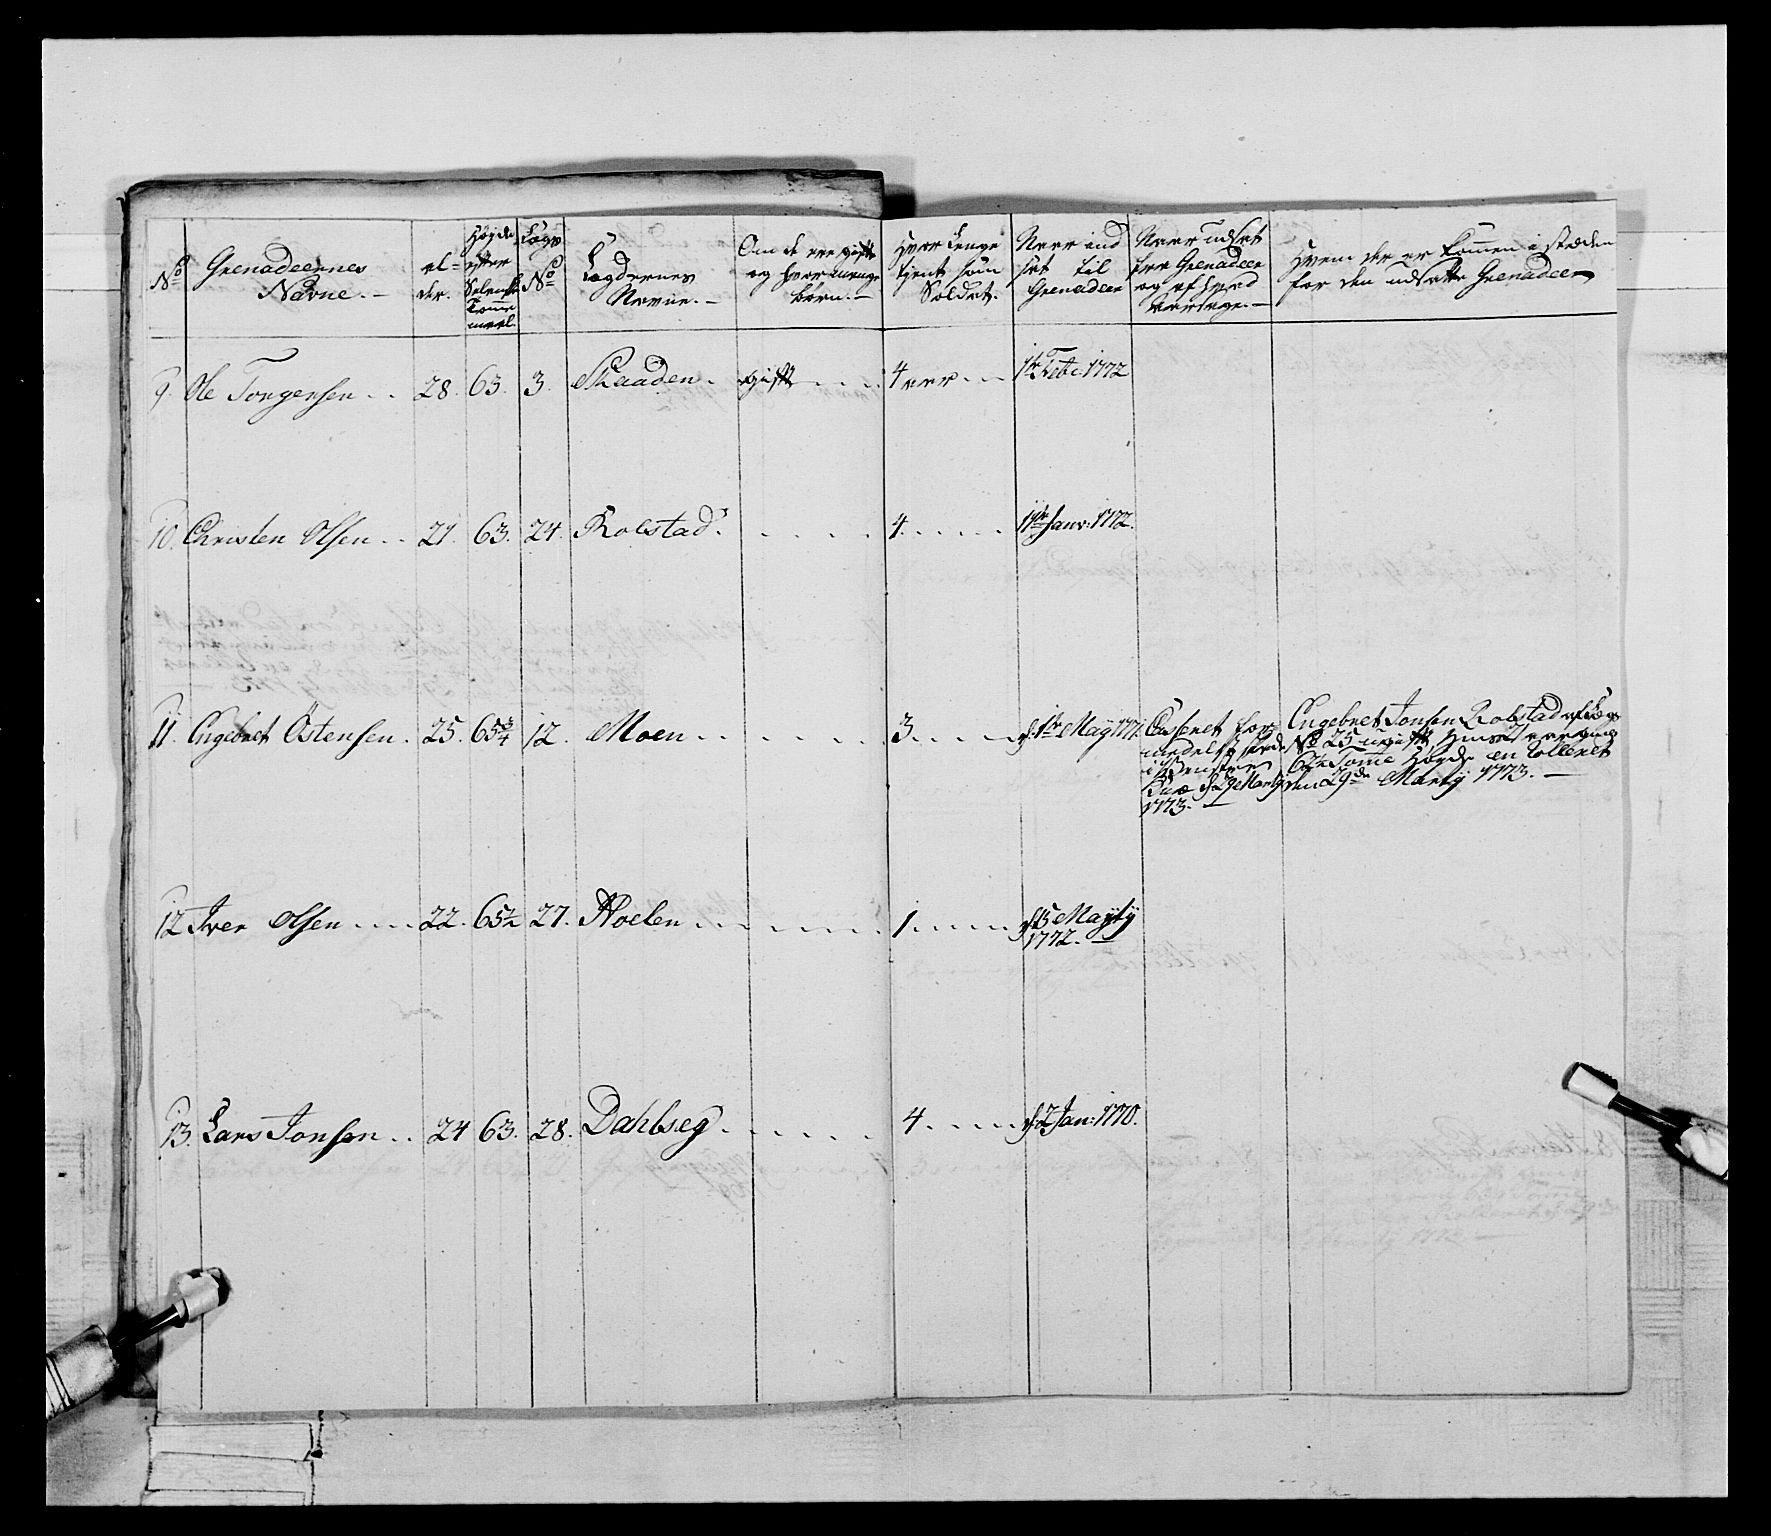 No
Grenadeernes
Navne.-
al=
der.
Høyde
efter
Tomme
maal.
Lægs
No
Lægdernes
Navne.-
Om de ere gift
og hvor mange
børn.-
Hvor længe
tient som
Soldat.
Naar ind
sat til
Grenadeer
Naar udsat
fra Grenadeer
og af hvad
Aarsage.-
Hvem der er kommen i stæden
for den udsatte Grenadeer
9. Ole Torgersen . . 28. 63. 3. Skaaden . gift . . . 4 aar . . . 1te Feb: 1772
10. Christen Olsen . . 21. 63. 24. Kolstad . . . . . 4. . . . . 11te Janv: 1772.
11. Engebret Östensen . 25. 65 3/4 12. Moen . . . . . . 3. . . . . d: 1te Maÿ 1771.
Casseret for-
Cur d 29 Martÿ
1773.-
Engebret Jonsen Kolstad af Læg
No 25 ugift
Tome Høyde en Rolleret
den 29de Martÿ 1773.-
12. Iver Olsen . . . . 22. 65 1/2 27. Hoelen . . . . . . 1. . . . . d 15 Maÿtÿ
1772.-
13. Lars Jonsen . . 24 63. 28. Dahlseg . . . . . 4. . . . . d 2 Jan: 1770.